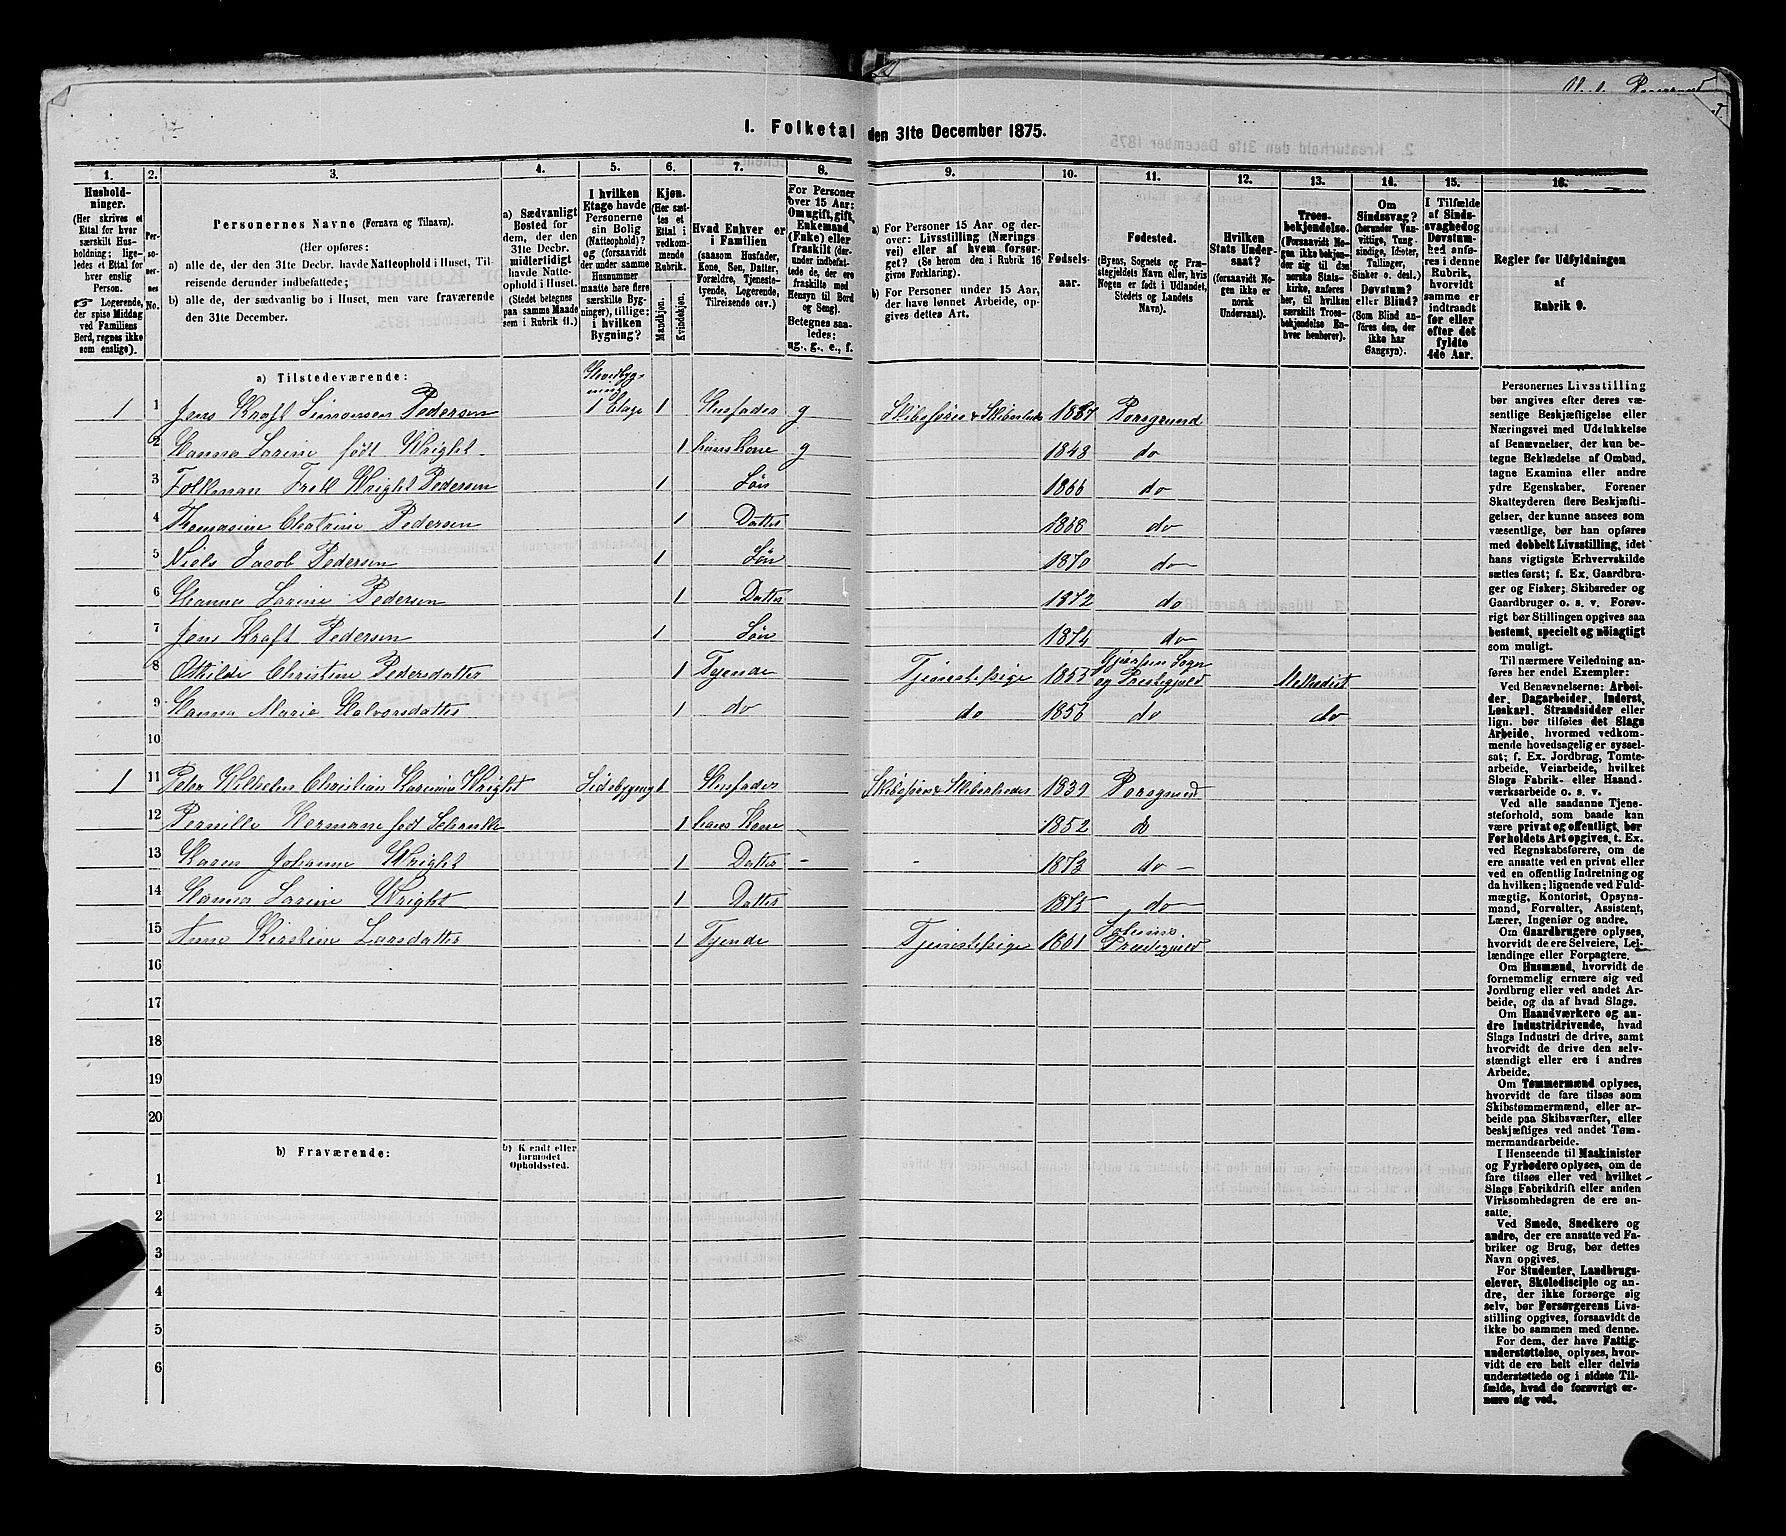 I. Folketal den 31te December 1875.
1.
Hushold-
ninger.
(Her skrives et
Ettal for hver
særskilt Hus-
holdning; lige-
ledes et Ettal for
hver enslig
Person.
☞ Logerende,
der spise Middag
ved Familiens
Bord, regnes ikke
som enslige).
2.
Per-
so-
ner-
nes
No.
3.
Personernes Navne (Fornavn og Tilnavn).
(Her opføres:
a) alle de, der den 31te Decbr. havde Natteophold i Huset, Til-
reisende derunder indbefattede;
b) alle de, der sædvanlig bo i Huset, men vare fraværende
den 31te December.
4.
a) Sædvanligt
Bosted for
dem, der den
31te Decbr.
midlertidigt
havde Natte-
ophold i Huset.
(Stedet betegnes
paa samme Maade
som i Rubrik 11.)
5.
I hvilken
Etage havde
Personerne
sin Bolig
(Natteophold)?
og (forsaavidt
der under samme
Husnummer
maatte høre flere
særskilte Byg-
ninger), tillige:
i hvilken
Bygning?
6.
Kjøn.
(Her sæt-
tes et
Ettal i
vedkom-
mende
Rubrik.)
Mandkjøn.
Kvindekjøn.
7.
Hvad Enhver er
i Familien
(saasom Husfader,
Kone, Søn, Datter,
Forældre, Tjeneste-
tyende, Logerende,
Tilreisende osv.)
8.
For Personer
over 15 Aar:
Om ugift, gift,
Enkemand
(Enke) eller
fraskilt (der-
under indbefat-
tede de, der ere
fraskilte med
Hensyn til Bord
og Seng).
Betegnes saa-
ledes:
ug., g., e., f.
9.
a) For Personer 15 Aar og der-
over: Livsstilling (Nærings-
vei) eller af hvem forsør-
get? (Se herom den i Rubrik 16
givne Forklaring).
b) For Personer under 15 Aar,
der have lønnet Arbeide, op-
gives dettes Art.
10.
Fødsels-
aar.
11.
Fødested.
(Byens, Sognets og Præ-
stegjeldets Navn eller, hvis
Nogen er født i Udlandet,
Stedets og Landets
Navn).
12.
Hvilken
Stats Under-
saat?
(forsaavidt No-
gen ikke er
norsk
Undersaat).
13.
Troes-
bekjendelse.
(Forsaavidt No-
gen ikke bekjen-
der sig til den
norske Stats-
kirke, anføres
her, til hvilken
særskilt Troes-
bekjendelse En-
hver henhører).
14.
Om
Sindssvag?
(herunder Van-
vittige, Tung-
sindige, Idioter,
Tullinger,
Sinker o. desl.)
Døvstum?
eller Blind?
(Som Blind an-
føres den, der
ikke har
Gangsyn).
15.
I Tilfælde
af Sinds-
svaghed og
Døvstum-
hed anfø-
res i denne
Rubrik,
hvorvidt
samme er
indtraadt
før eller
efter det
fyldte
4de Aar.
16.
Regler for Udfyldningen
af
Rubrik 9.
a) Tilstedeværende:
1 1 Jens Kraft Simonsen Pedersen Hovedbyg-
ning
1 Etage 1 Husfader g Skibsfører & Skibsrheder 1837 Porsgrund
2 Hanna Larine født Wright 1 hans Kone g 1843 do
3 Folkman Fredk Wright Pedersen 1 Søn 1866 do
4 Thomasine Chatrine Pedersen 1 Datter 1868 do
5 Niels Jacob Pedersen 1 Søn 1870 do
6 Hanna Larine Pedersen 1 Datter 1872 do
7 Jens Kraft Pedersen 1 Søn 1874 do
8 Othilde Christine Pedersdatter 1 Tyende Tjenestepige 1855 Gjerpen Sogn
og Prestegjeld Methodist
9 Hanna Marie Halvorsdatter 1 do do 1856 do do
10
1 11 Peter Wilhelm Christian Wright Sidebygning 1 Husfader Skibsfører & Skibsrheder 1839 Porsgrund
12 Pernille Hermane født 1 hans Kone 1852 do
13 Karen Johanne Wright 1 Datter - - 1873 do
14 Hanna Larine Wright 1 Datter 1875 do
15 Anne Kirstine Larsdatter 1 Tyende Tjenestepige 1861 Prestegjeld
16
17
18
19
20
b) Fraværende:
b) Kjendt eller
formodet
Opholdssted.
1
2
3
4
5
6
Personernes Livsstilling
bør angives efter deres væ-
sentlige Beskjæftigelse eller
Næringsvei med Udelukkelse
af Benævnelser, der kun be-
tegne Beklædelse af Ombud,
tagne Examina eller andre
ydre Egenskaber. Forener
Skatteyderen flere Beskjæfti-
gelser, der kunne ansees som
væsentlige, bør han opføres
med dobbelt Livsstilling, idet
hans vigtigste Erhvervskilde
sættes først; f. Ex. Gaardbru-
ger og Fisker; Skibsreder og
Gaardbruger o. s. v. Forøv-
rigt bør Stillingen opgives saa
bestemt, specielt og nöiagtigt
som muligt.
Til nærmere Veiledning an-
føres her endel Exempler:
Ved Benævnelserne: Arbei-
der, Dagarbeider, Inderst,
Løskarl, Strandsidder eller
lign. bør tilføies det Slags
Arbeide, hvormed vedkom-
mende hovedsagelig er syssel-
sat; f. Ex. Jordbrug, Tomte-
arbeide, Veiarbeide, hvilket
Slags Fabrik- eller Haand-
værksarbeide o. s. v.
Ved alle saadanne Tjene-
steforhold, som baade kan
være privat og offentligt, bør
Forholdets Art opgives, t. Ex.
ved Regnskabsførere, om de
ere ansatte ved en privat eller
ved en offentlig Indretning og
da hvilken; lignende ved Fuld-
mægtig, Kontorist, Opsyns-
mand, Forvalter, Assistent,
Lærer, Ingeniør og andre.
Om Gaardbrugere oplyses,
hvorvidt de ere Selveiere, Lei-
lændinge eller Forpagtere.
Om Husmænd, hvorvidt de
fornemmelig ernære sig ved
Jordbrug eller ved andet Ar-
beide, og da af hvad Slags.
Om Haandværkere og an-
dre Industridrivende, hvad
Slags Industri de drive, samt
hvorvidt de drive den selv-
stændigt eller ere i andres
Arbeide.
Om Tømmermænd oplyses,
hvorvidt de fare tilsøs som
Skibstømmermænd, eller ar-
beide paa Skibsværfter, eller
beskjæftiges ved andet Tøm-
mermandsarbeide.
I Henseende til Maskinister
og Fyrbødere oplyses, om de
fare tilsøs eller ved hvilket
Slags Fabrikdrift eller anden
Virksomhedsgren de ere an-
satte.
Ved Smede, Snedkere og
andre, der ere ansatte ved Fa-
briker og Brug, bør dettes
Navn opgives.
For Studenter, Landbrugs-
elever, Skoledisciple og an-
dre, der ikke forsørge sig
selv, bør Forsørgerens Livs-
stilling opgives, forsaavidt de
ikke bo sammen med denne.
For dem, der have Fattig-
understøttelse, oplyses, hvor-
vidt de ere helt eller delvis
understøttede og i sidste Til-
fælde, hvad de forøvrigt er-
nære sig ved.